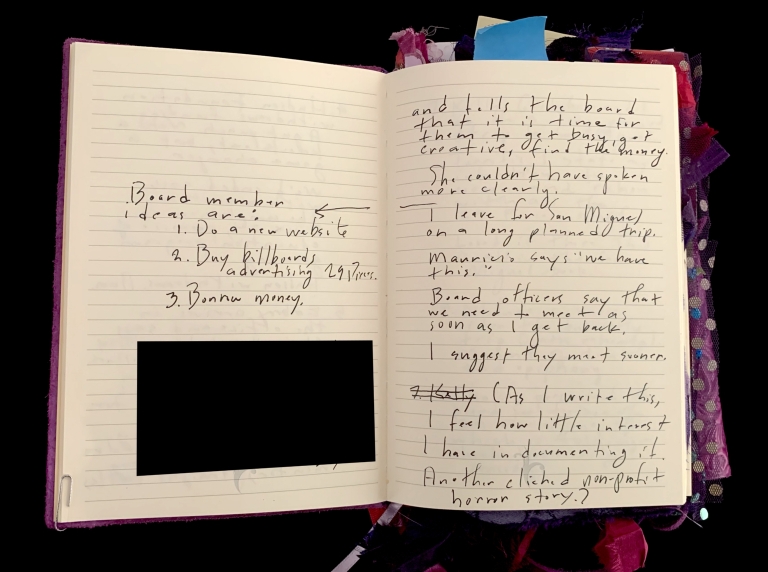 Board member
ideas are:
1. Do a new website
2. Buy billboards
advertising 29 Pieces.
3. Borrow money.
and tells the board
that it is time for
them to get busy, get
creative, find the money.
She couldn't have spoken
more clearly.
I leave for San Miguel
on a long planned trip.
Mauricio says "we have
this."
Board officers say that
we need to meet as
soon as I get back.
I suggest they meet sooner.
(As I write this,
I feel how little interest
I have in documenting it.
Another cliched non-profit
horror story.?